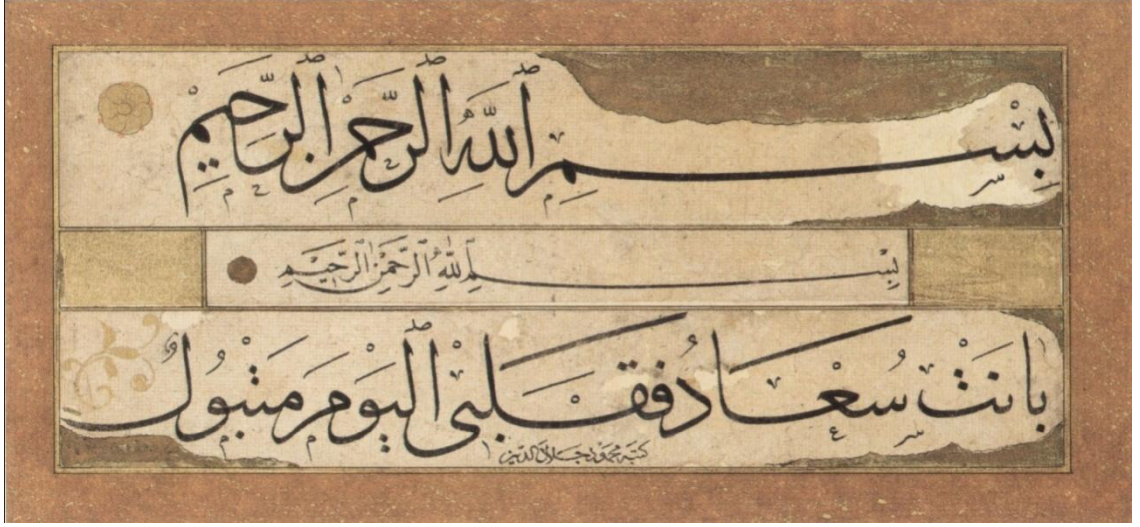 بِسْمِ اللهِ الرَّحْمٰنِ الرَّحِيمِ
بِسْمِ اللهِ الرَّحْمٰنِ الرَّحِيمِ
بانَتْ سُعَادُ فَقَلْبِى الْيَوْمَ مَتْبُولُ
كتبه محمود جلال الدين